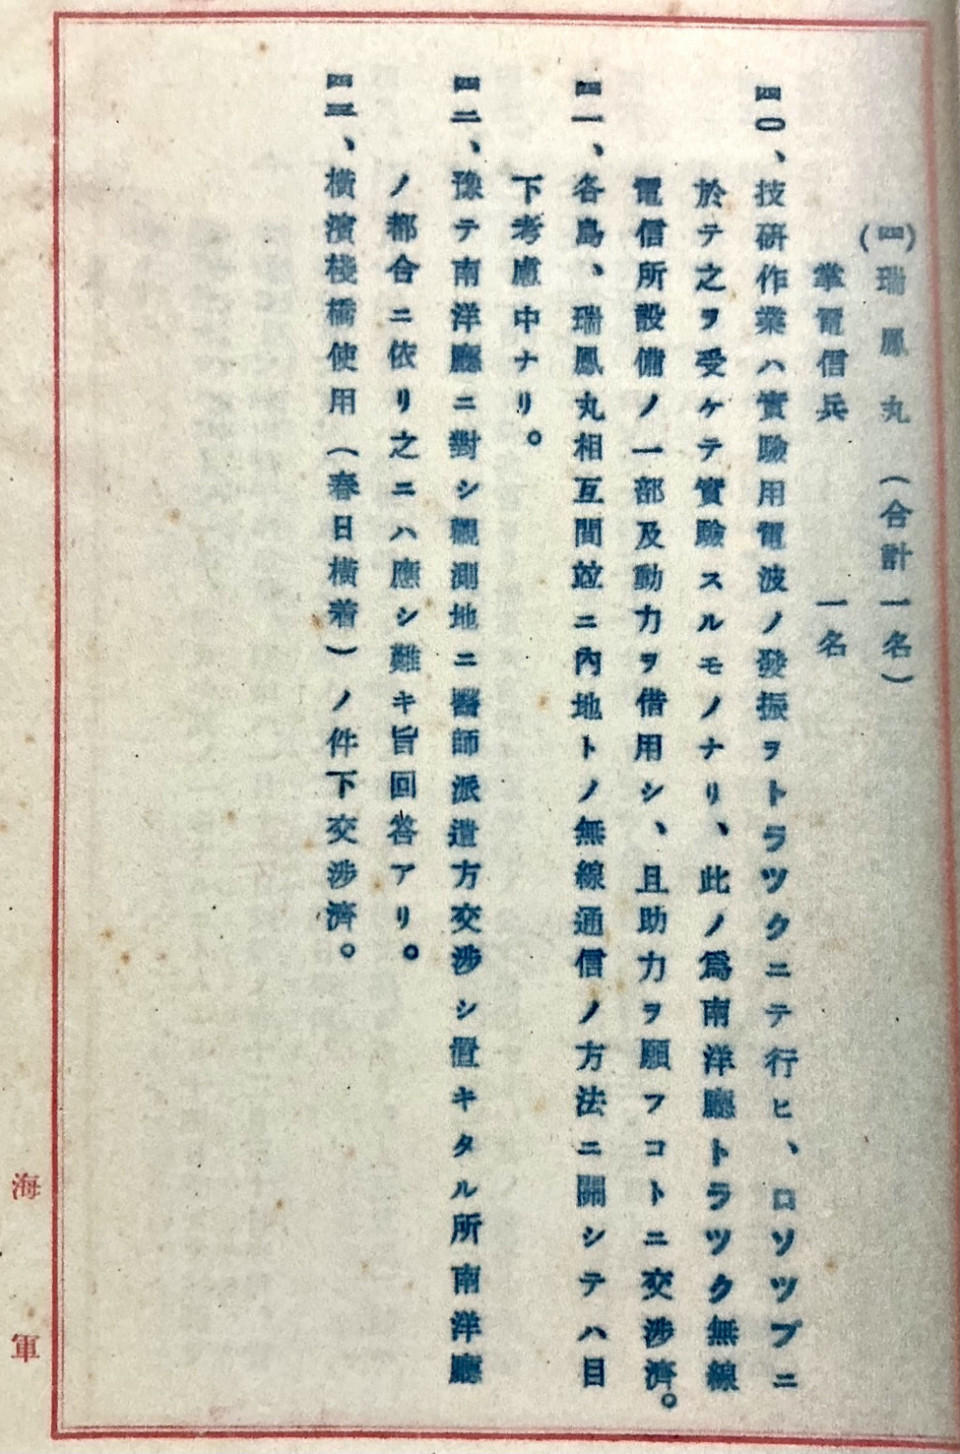 (四)瑞鳳丸（合計一名）
掌電信兵　一名
四〇、技研作業ハ實驗用電波ノ發振ヲトラツクニテ行ヒ、ロソツプニ
於テ之ヲ受ケテ實驗スルモノナリ、此ノ爲南洋廳トラツク無線
電信所設備ノ一部及動力ヲ借用シ、且助力ヲ願フコトニ交渉濟。
四一、各島、瑞鳳丸相互間竝ニ內地トノ無線通信ノ方法ニ關シテハ目
下考慮中ナリ。
四二、豫テ南洋廳ニ對シ觀測地ニ醫師派遣方交渉シ置キタル所南洋廳
ノ都合ニ依リ之ニハ應シ難キ旨回答アリ。
四三、橫濱棧橋使用（春日橫着）ノ件下交渉濟。
海軍